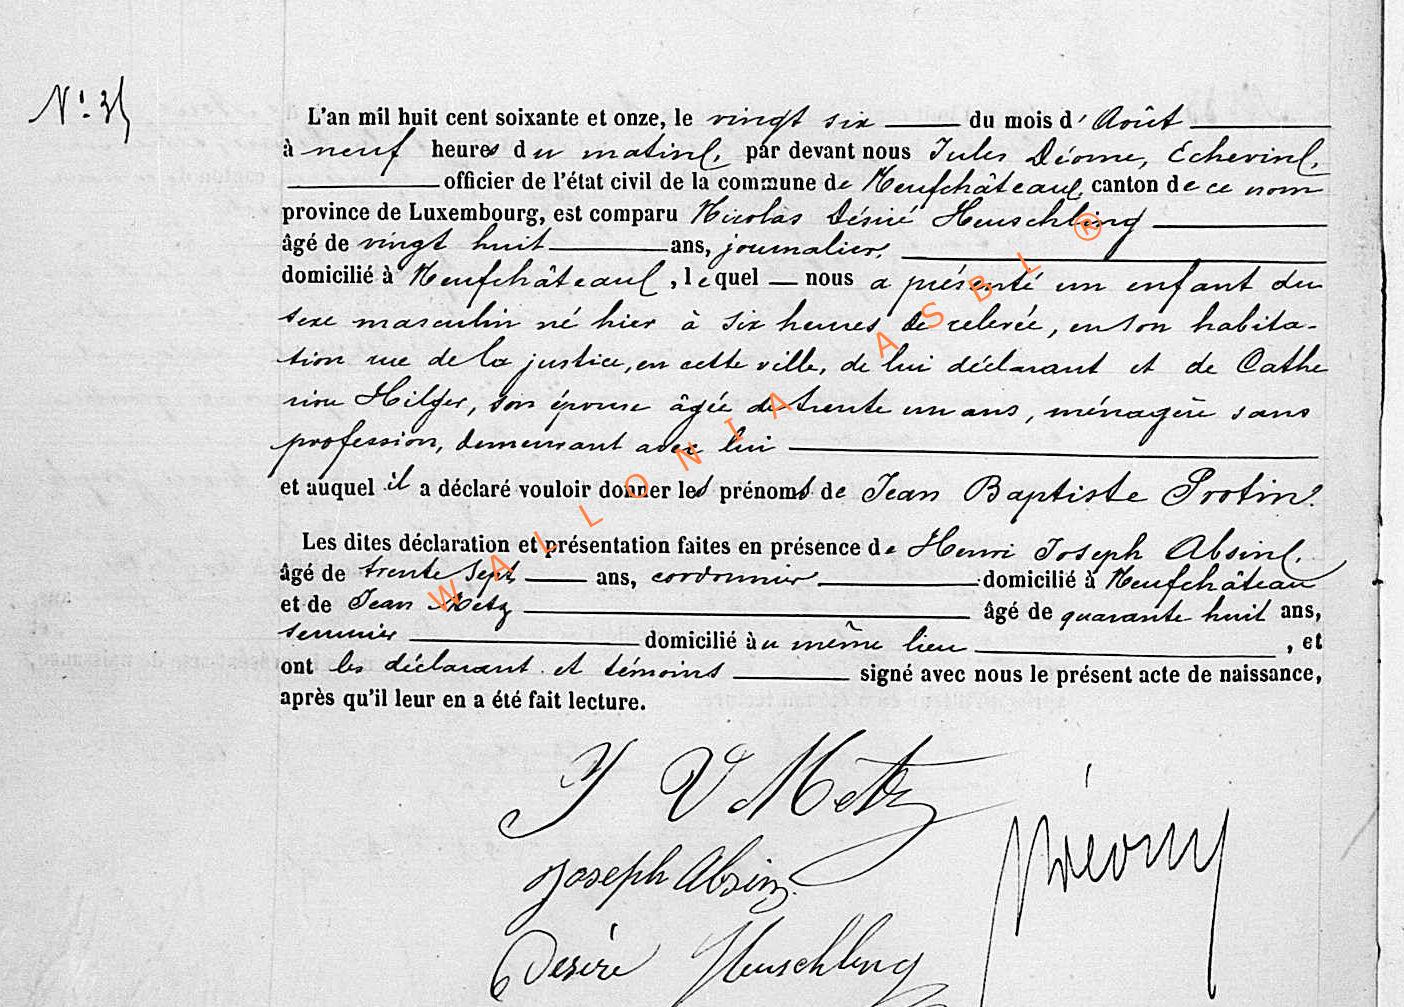 N° 35
L'an mil huit cent soixante et onze, le vingt six du mois d' Août
à neuf heures du matin, par devant nous Jules Déome, Echevin,
officier de l'état civil de la commune de Neufchâteau, canton de ce nom
province de Luxembourg, est comparu Nicolas Désiré Heuschling
âgé de vingt huit ans, journalier,
domicilié à Neufchâteau, lequel nous a présenté un enfant du
sexe masculin né hier à six heures de relevée, en son habita-
tion rue de la justice, en cette ville, de lui déclarant et de Cathe
rine Hilger, son épouse âgée de trente un ans, ménagère sans
profession, demeurant avec lui
et auquel il a déclaré vouloir donner les prénoms de Jean Baptiste Protin.
Les dites déclaration et présentation faites en présence de Henri Joseph Absil,
âgé de trente sept ans, cordonnier domicilié à Neufchâteau
et de Jean Metz âgé de quarante huit ans,
domicilié au même lieu, et
ont les déclarant et témoins signé avec nous le présent acte de naissance,
après qu'il leur en a été fait lecture.
J V Metz
Joseph Absin
Déome
Désiré Heuschling
WALLONIA ASBL ®